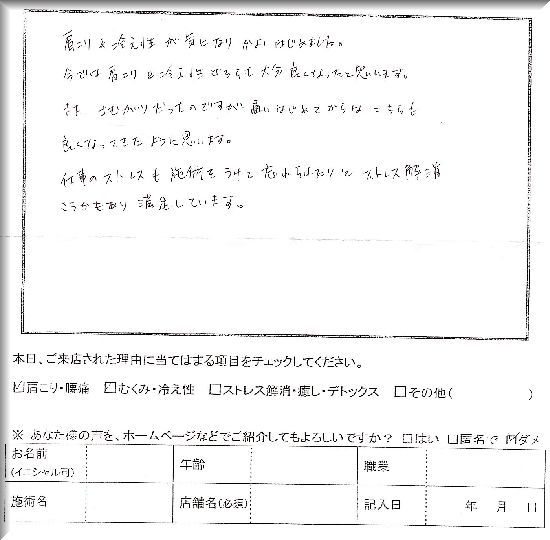 肩こりと冷え性が気になりかよいはじめました。
今では肩こりと冷え性どちらも大分良くなったと思います。
また、さむがりだったのですが通いはじめてからはこちらも
良くなってきたように思います。
仕事のストレスも施術をうけて忘れられたりとストレス解消
こうかもあり満足しています。
本日、ご来店された理由に当てはまる項目をチェックしてください。
☑肩こり・腰痛 ☑むくみ・冷え性 □ストレス解消・癒し・デトックス □その他( )
※ あなた様の声を、ホームページなどでご紹介してもよろしいですか? □はい □匿名で ダメ
お名前 年齢 職業
(イニシャル可)
施術名 店舗名(必須) 記入日 年 月 日